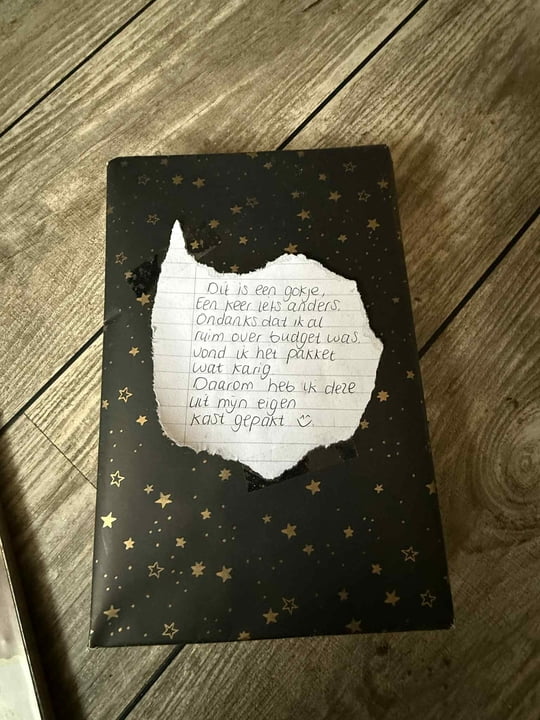 Dit is een gokje,
Een keer iets anders.
Ondanks dat ik al
ruim over budget was.
vond ik het pakket
wat karig.
Daarom heb ik deze
uit mijn eigen
kast gepakt